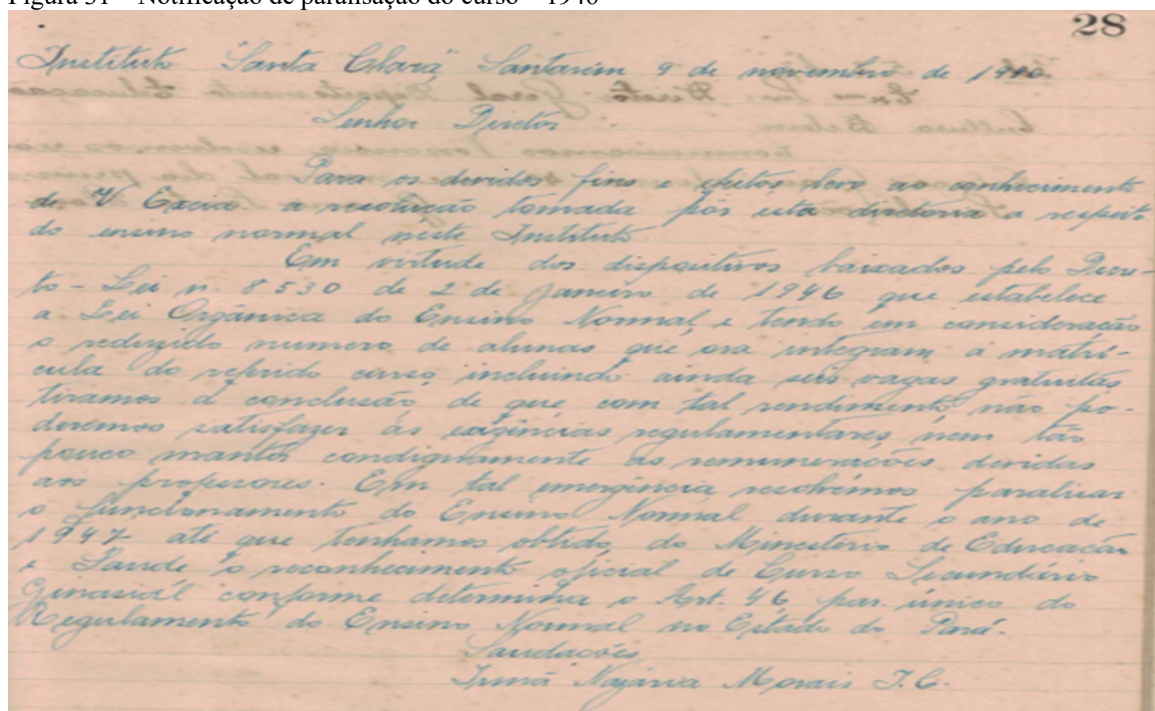 Figura 31 – Notificação de paralisação do curso – 1946
28
Instituto "Santa Clara" Santarém 9 de novembro de 1946.
Senhor Diretor
Para os devidos fins e efeitos levo ao conhecimento
de V. Excia. a resolução tomada por esta diretoria a respeito
do ensino normal neste Instituto
Em virtude dos dispositivos baixados pelo Decre-
to-Lei n. 8530 de 2 de Janeiro de 1946 que estabelece
a Lei Orgânica do Ensino Normal, e tendo em consideração
o reduzido numero de alunas que ora integram a matri-
cula do referido curso, incluindo ainda seis vagas gratuitas
tiramos á conclusão de que com tal rendimento, não po-
deremos satisfazer ás exigências regulamentares, nem tão
pouco manter condignamente as remunerações devidas
aos professores. Em tal emergência resolvemos paralisar
o funcionamento do Ensino Normal durante o ano de
1947 até que tenhamos obtido do Ministério de Educação
e Saude o reconhecimento oficial de Curso Secundário
Ginasiál conforme determina o Art. 46 par. único do
Regulamento do Ensino Normal no Estado do Pará.
Saudações
Irmã Morais I.C.